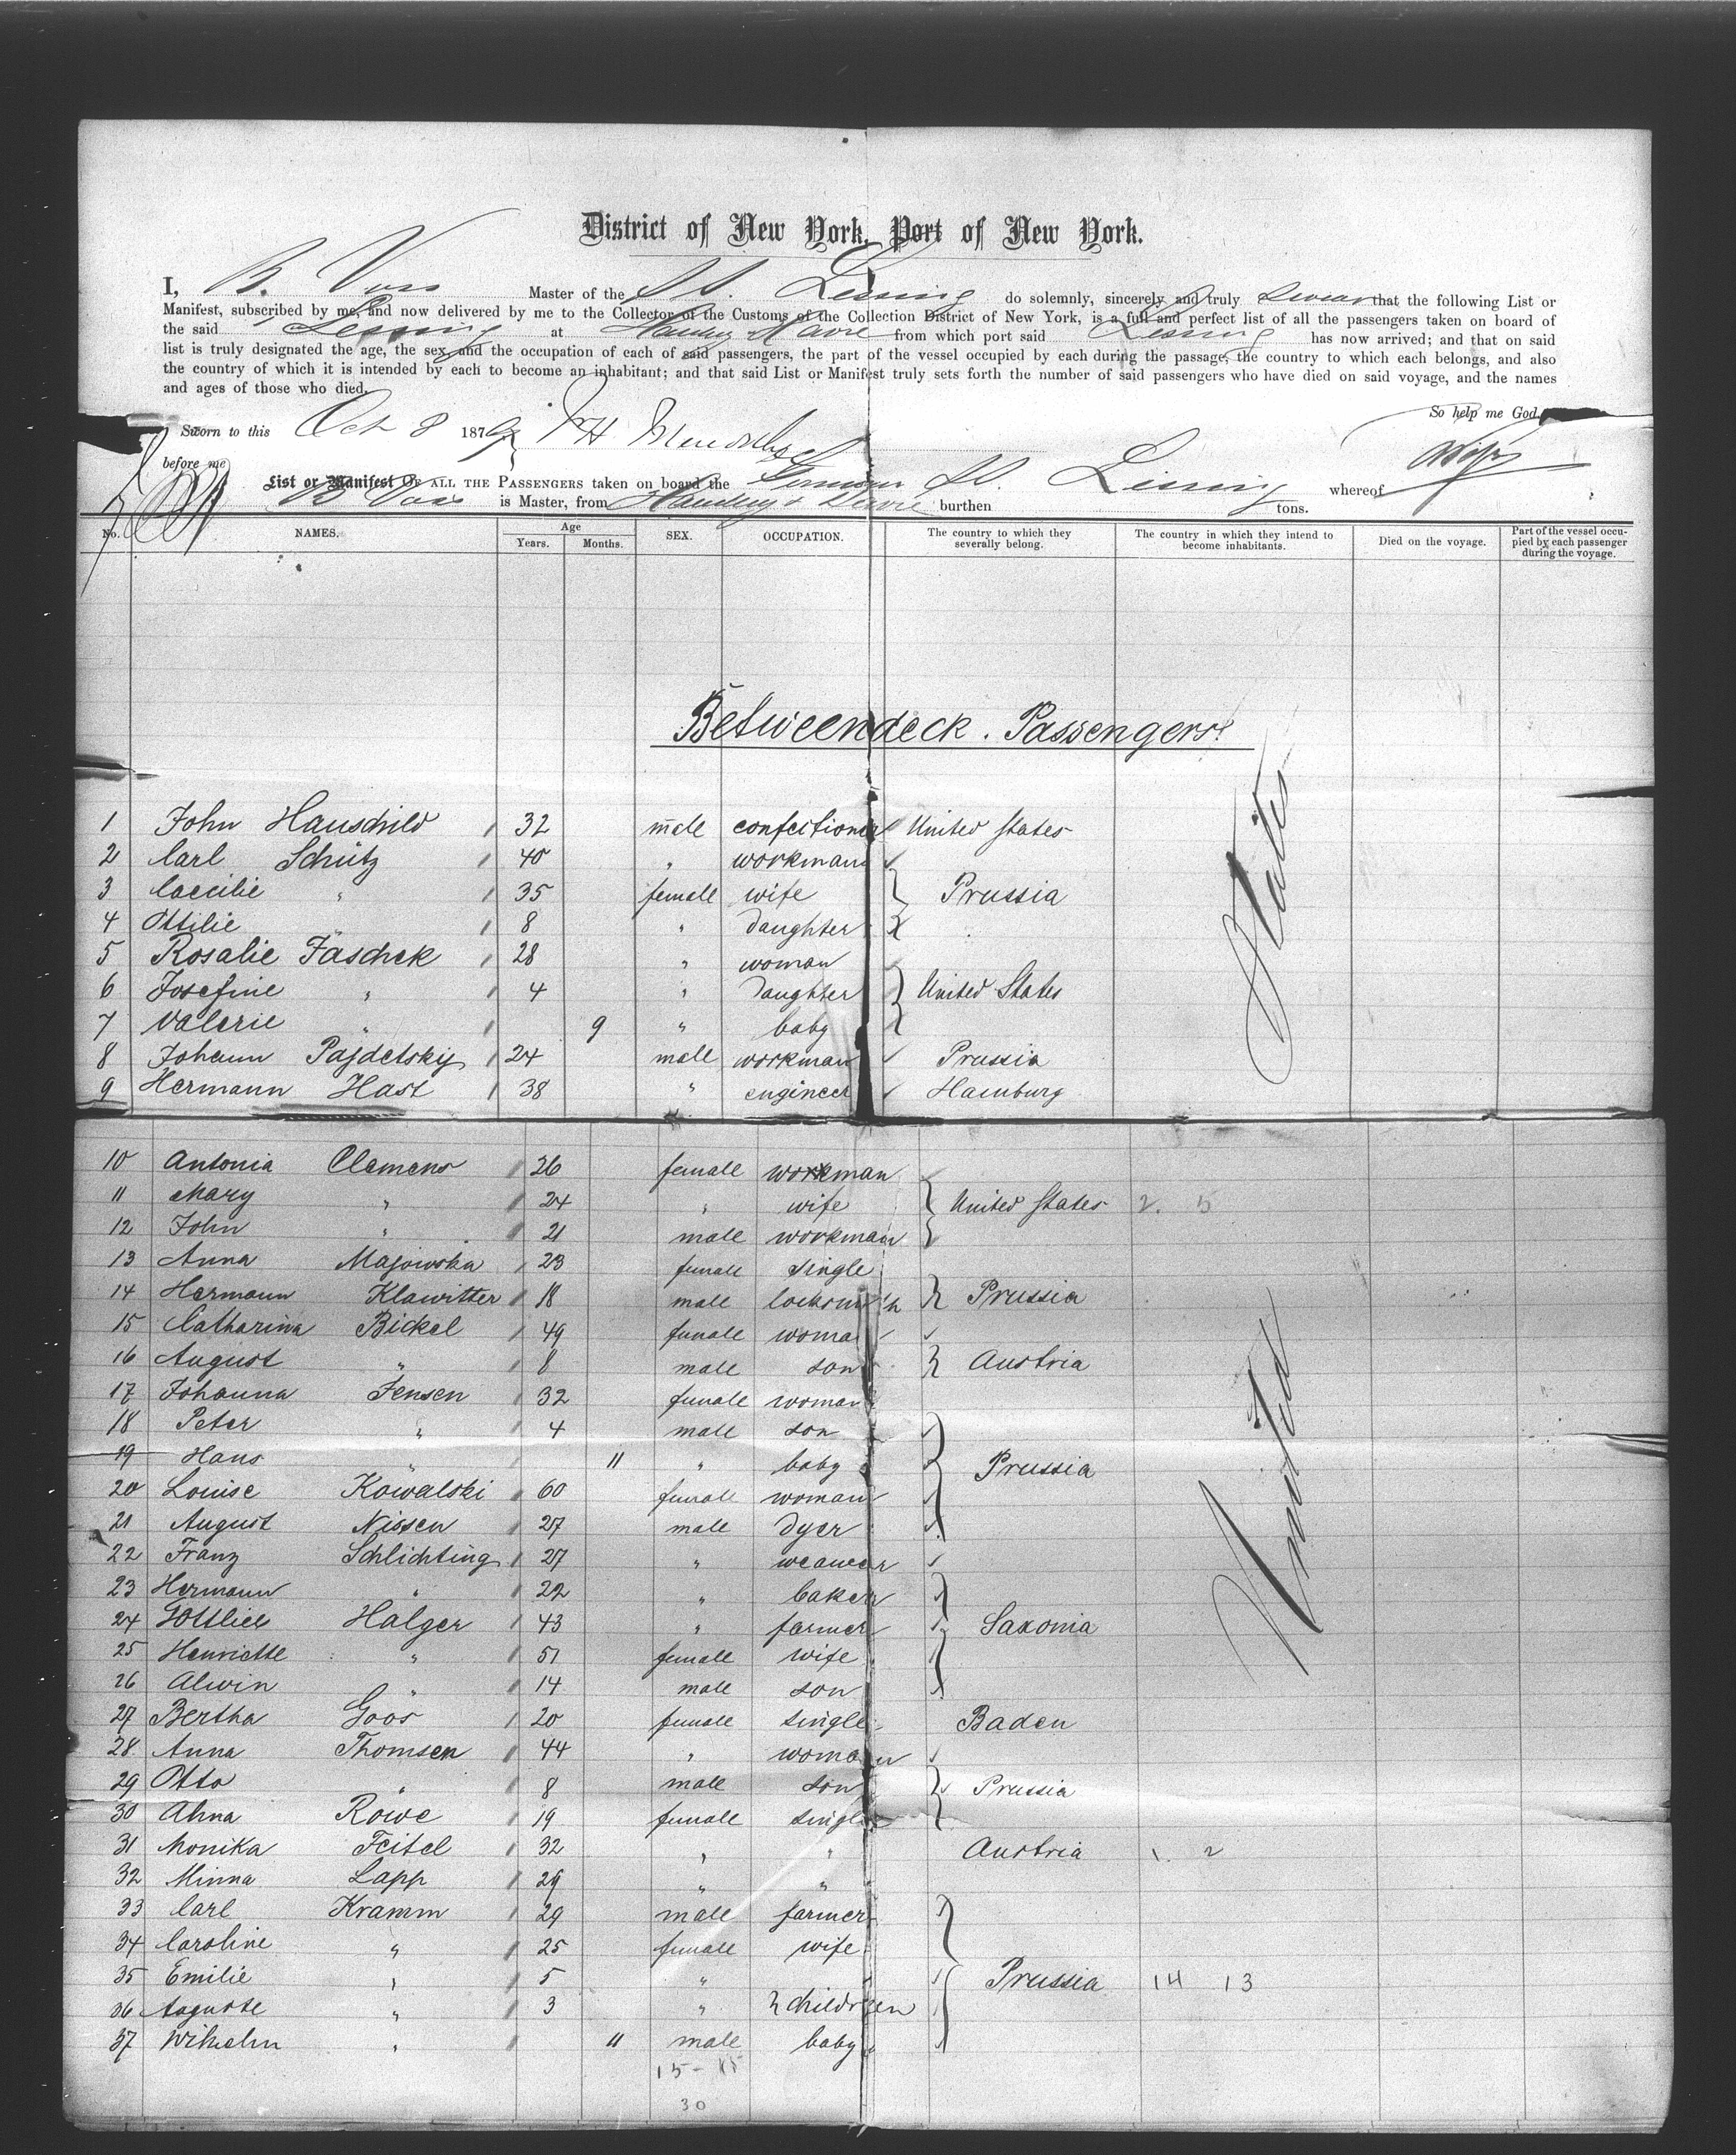 District of New York, Port of New York.
I, B. Voss Master of the SS. Lessing do solemnly, sincerely and truly swear that the following List or
Manifest, subscribed by me, and now delivered by me to the Collector of the Customs of the Collection District of New York, is a full and perfect list of all the passengers taken on board of
the said Lessing at Hamburg Havre from which port said Lessing has now arrived; and that on said
list is truly designated the age, the sex, and the occupation of each of said passengers, the part of the vessel occupied by each during the passage, the country to which each belongs, and also
the country of which it is intended by each to become an inhabitant; and that said List or Manifest truly sets forth the number of said passengers who have died on said voyage, and the names
and ages of those who died.
So help me God.
Sworn to this Oct 8 1879
before me
List or Manifest OF ALL THE PASSENGERS taken on board the German SS. Lessing whereof
B Voss is Master, from Hamburg & Havre burthen tons.
No. NAMES. Age Years. Months. SEX. OCCUPATION. The country to which they severally belong. The country in which they intend to become inhabitants. Died on the voyage. Part of the vessel occupied by each passenger during the voyage.
Betweendeck. Passengers.
1 John Hauschild 32 male confectioner United States
2 Carl Schütz 40 " workman
3 Caecilie " 35 female wife Prussia
4 Ottilie " 8 " daughter
5 Rosalie Faschek 28 " woman
6 Josefine " 4 " daughter United States
7 Valerie " 9 " baby
8 Johann Pajdetsky 24 male workman Prussia
9 Hermann Hast 38 " engineer Hamburg
10 Antonia Clemens 26 female workman
11 Mary " 24 " wife United States 2. 5
12 John " 21 male workman
13 Anna Majowska 23 female single
14 Hermann Klawitter 18 male locksmith Prussia
15 Catharina Bickel 49 female woman
16 August " 8 male son Austria
17 Johanna Jensen 32 female woman
18 Peter " 4 male son
19 Hans " 11 " baby Prussia
20 Louise Kowalski 60 female woman
21 August Nissen 27 male dyer
22 Franz Schlichting 27 " weawer
23 Hermann " 22 " baker
24 Gottlieb Halger 43 " farmer Saxonia
25 Henriette " 51 female wife
26 Alwin " 14 male son
27 Bertha Goos 20 female single Baden
28 Anna Thomsen 44 " woman
29 Otto " 8 male son Prussia
30 Anna Rowe 19 female single
31 Monika Feitel 32 " " Austria 1. 2
32 Minna Lapp 29 " "
33 Carl Kramm 29 male farmer
34 Caroline " 25 female wife
35 Emilie " 5 " Prussia 14 13
36 Auguste " 3 " children
37 Wilhelm " 11 male baby
United States
15 - 15
30